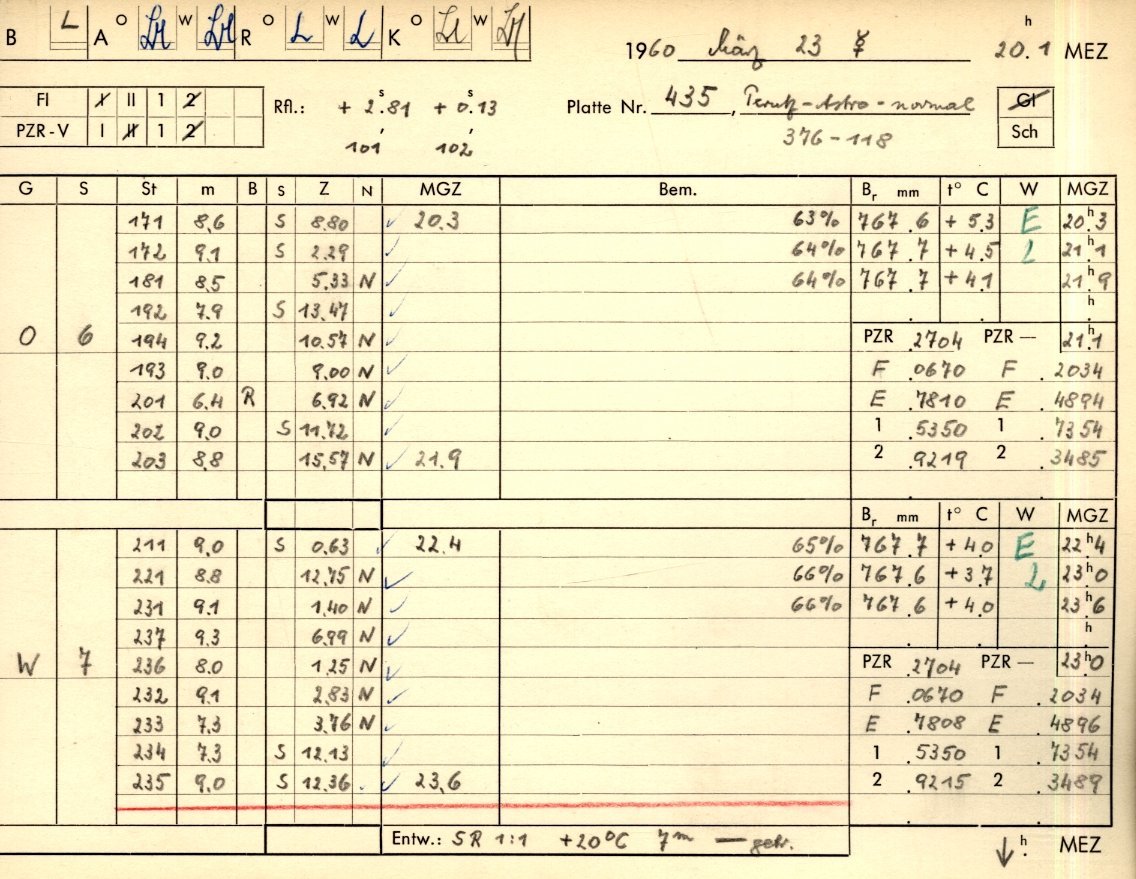 B L A O W R O L W L K O W
1960 März 23 ☿ 20.1 h MEZ
FI I II 1 2
PZR-V I II 1 2
Rfl.: + 2.81 s + 0.13 s
101 102
Platte Nr. 435, Perutz-Astro-normal
376-118
GI
Sch
G S St m B S Z N MGZ Bem. Br mm t° C W MGZ
171 8,6 S 8.80 ✓ 20.3 63% 767.6 + 5.3 E 20 h 3
172 9.1 S 2.29 ✓ 64% 767.7 + 4.5 2 21 h 1
181 8.5 5.33 N ✓ 64% 767.7 + 4.1 21 h 9
192 7.9 S 13.47 ✓ h
O 6 194 9.2 10.57 N ✓ PZR .2704 PZR — 21 h 1
193 9.0 9.00 N ✓ F .0670 F .2034
201 6.4 R 6.92 N ✓ E .7810 E .4894
202 9.0 S 11.72 ✓ 1 .5350 1 .7354
203 8.8 15.57 N ✓ 21.9 2 .9219 2 .3485
Br mm t° C W MGZ
211 9.0 S 0.63 ✓ 22.4 65% 767.7 + 4.0 E 22 h 4
221 8.8 12.75 N ✓ 66% 767.6 + 3.7 2 23 h 0
231 9.1 1.40 N ✓ 66% 767.6 + 4.0 23 h 6
237 9.3 6.99 N ✓ h
W 7 236 8.0 1.25 N ✓ PZR .2704 PZR — 23 h 0
232 9.1 2.83 N ✓ F .0670 F .2034
233 7.3 3.76 N ✓ E .7808 E .4896
234 7.3 S 12.13 ✓ 1 .5350 1 .7354
235 9.0 S 12.36 ✓ 23.6 2 .9215 2 .3489
Entw.: SR 1:1 +20°C 7 m — getr. ↓ h . MEZ